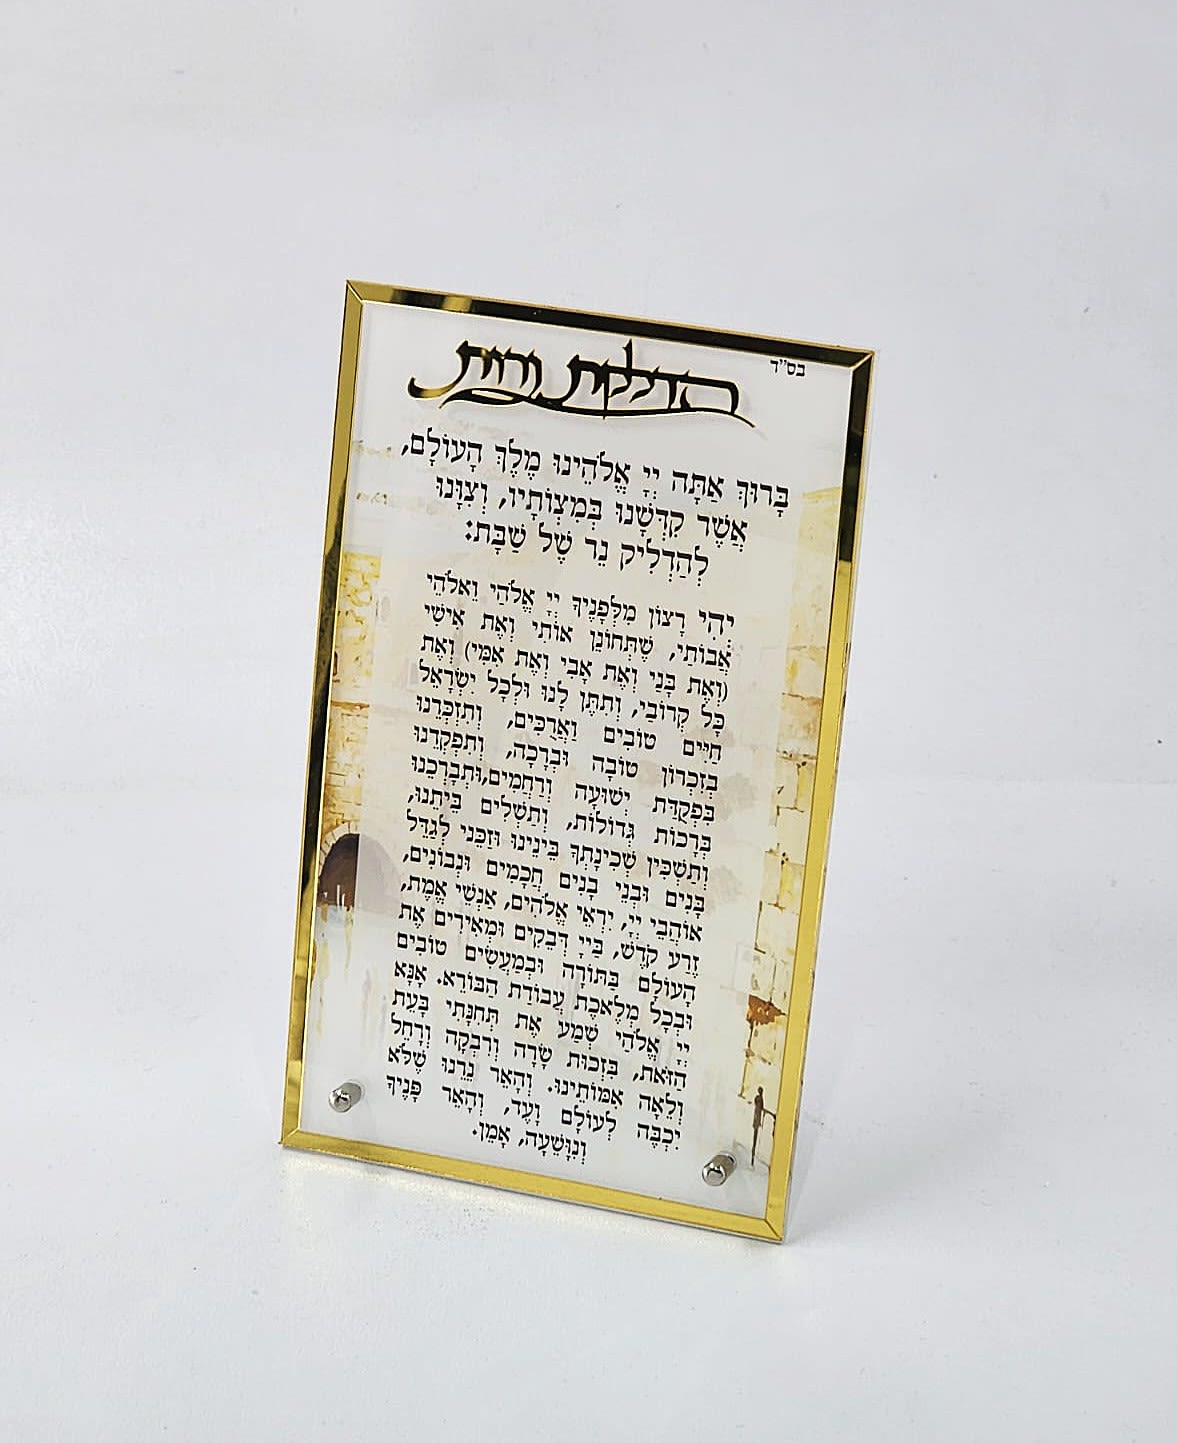 בס"ד
הדלקת נרות
בָּרוּךְ אַתָּה יְיָ אֱלֹהֵינוּ מֶלֶךְ הָעוֹלָם,
אֲשֶׁר קִדְּשָׁנוּ בְּמִצְוֹתָיו, וְצִוָּנוּ
לְהַדְלִיק נֵר שֶׁל שַׁבָּת:
יְהִי רָצוֹן מִלְּפָנֶיךָ יְיָ אֱלֹהַי וֵאלֹהֵי
אֲבוֹתַי, שֶׁתְּחוֹנֵן אוֹתִי וְאֶת אִישִׁי
(וְאֶת בָּנַי וְאֶת אָבִי וְאֶת אִמִּי) וְאֶת
כָּל קְרוֹבַי, וְתִתֶּן לָנוּ וּלְכָל יִשְׂרָאֵל
חַיִּים טוֹבִים וַאֲרֻכִּים, וְתִזְכְּרֵנוּ
בְּזִכְרוֹן טוֹבָה וּבְרָכָה, וְתִפְקְדֵנוּ
בִּפְקֻדַּת יְשׁוּעָה וְרַחֲמִים,וּתְבָרְכֵנוּ
בְּרָכוֹת גְּדוֹלוֹת, וְתַשְׁלִים בֵּיתֵנוּ,
וְתַשְׁכִּין שְׁכִינָתְךָ בֵּינֵינוּ וְזַכֵּנִי לְגַדֵּל
בָּנִים וּבְנֵי בָנִים חֲכָמִים וּנְבוֹנִים,
אוֹהֲבֵי יְיָ, יִרְאֵי אֱלֹהִים, אַנְשֵׁי אֱמֶת,
זֶרַע קֹדֶשׁ, בַּייָ דְּבֵקִים וּמְאִירִים אֶת
הָעוֹלָם בַּתּוֹרָה וּבְמַעֲשִׂים טוֹבִים
וּבְכָל מְלֶאכֶת עֲבוֹדַת הַבּוֹרֵא. אָנָּא
יְיָ אֱלֹהַי שְׁמַע אֶת תְּחִנָּתִי בָּעֵת
הַזֹּאת, בִּזְכוּת שָׂרָה וְרִבְקָה וְרָחֵל
וְלֵאָה אִמּוֹתֵינוּ. וְהָאֵר נֵרֵנוּ שֶׁלֹּא
יִכְבֶּה לְעוֹלָם וָעֶד, וְהָאֵר פָּנֶיךָ
וְנִוָּשֵׁעָה, אָמֵן.